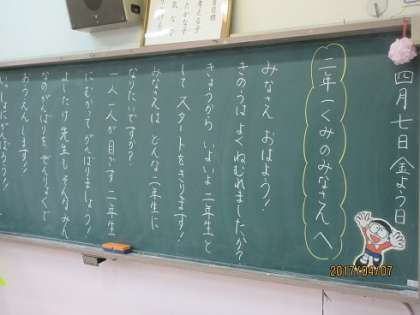 四月七日 金よう日
二年一くみのみなさんへ
みなさん おはよう！
きのうは よく ねむれましたか？
きょうから いよいよ 二年生と
して スタートをきります！
みなさんは どんな 二年生に
なりたいですか？
一人一人が 目ざす 二年生
にむかって がんばりましょう！
よしたけ先生も そんな みん
なの がんばりを ぜんりょくで
おうえんします！
2017/04/07